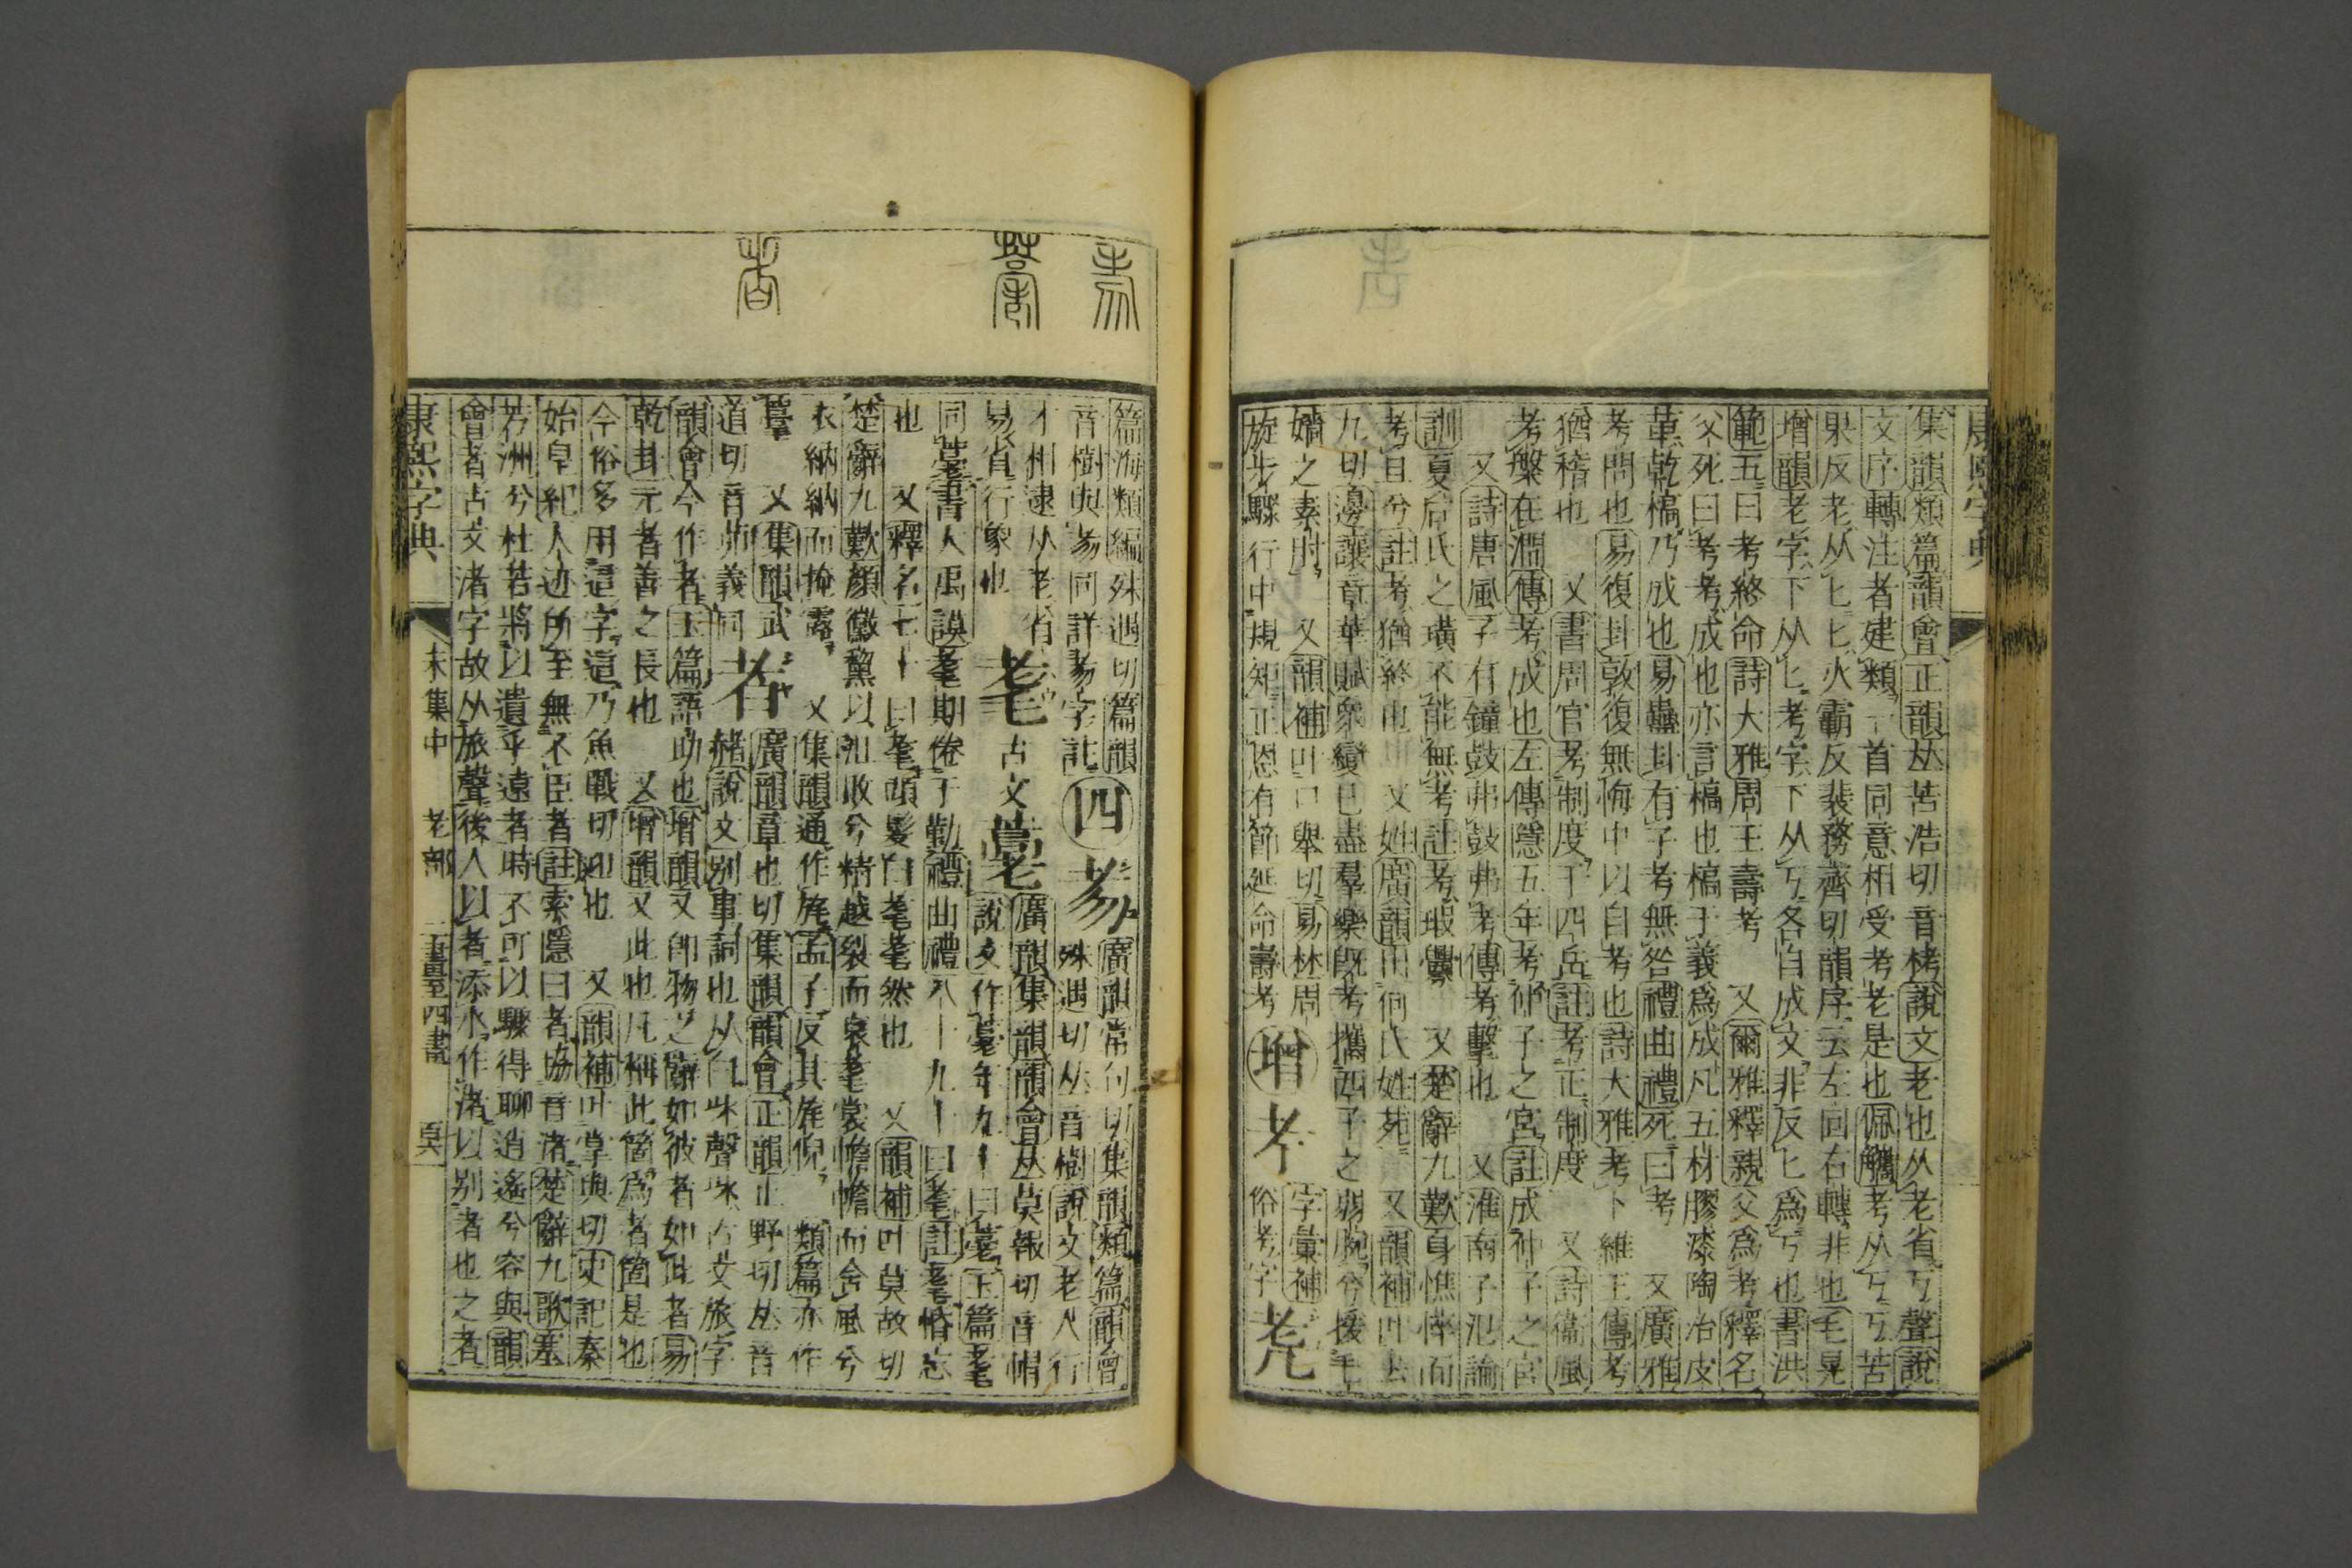 康熙字典
集韻類篇韻會正韻𠀤苦浩切音栲說文老也从老省丂聲說
文序轉注者建類一首同意相受考老是也佩觿考从丂丂苦
果反老从匕匕火霸反裴務齊切韻序云左回右轉非也毛晃
增韻老字下从匕考字下从丂各自成文非反匕爲丂也書洪
範五曰考終命詩大雅周王壽考 又爾雅釋親父爲考釋名
父死曰考考成也亦言槁也槁于義爲成凡五材膠漆陶冶皮
革乾槁乃成也易蠱卦有子考無咎禮曲禮死曰考 又廣雅
考問也易復卦敦復無悔中以自考也詩大雅考卜維王傳考
猶稽也 又書周官考制度于四岳註考正制度 又詩衞風
考槃在澗傳考成也左傳隱五年考仲子之宮註成仲子之宮
又詩唐風子有鐘鼓弗鼓弗考傳考擊也 又淮南子氾論
訓夏后氏之璜不能無考註考瑕釁 又楚辭九歎身憔悴而
考旦兮註考猶終也 又姓廣韻出何氏姓苑 又韻補叶去
九切邊讓章華賦衆變已盡羣樂旣考攜西子之弱腕兮援毛
嬙之素肘 又韻補叶口舉切易林周
旋步驟行中規矩正恩有節延命壽考 增 耂 字彙補俗考字 𠒬
篇海類編殊遇切篇韻
音樹與𦒱同詳𦒱字註 四 𦒱 廣韻常句切集韻類篇韻會
殊遇切𠀤音樹說文老人行
才相逮从老省
易省行象也 耄 古文𦒷 廣韻集韻韻會𠀤莫報切音帽
說文作𦒷年九十曰𦒷玉篇耄
同𦒷書大禹謨耄期倦于勤禮曲禮八十九十曰耄註耄惛忘
也 又釋名七十曰耄頭髮白耄耄然也 又韻補叶莫故切
楚辭九歎顏黴黧以沮敗兮精越裂而衰耄裳襜襜而含風兮
衣納納而掩露 又集韻通作旄孟子反其旄倪 類篇亦作
𦒷 又集韻武
道切音茆義同 者 廣韻章也切集韻韻會正韻止野切𠀤音
赭說文別事詞也从白𣎵聲𣎵古文旅字
韻會今作者玉篇語助也增韻又卽物之辭如彼者如此者易
乾卦元者善之長也 又增韻又此也凡稱此箇爲者箇是也
今俗多用這字這乃魚戰切迎也 又韻補叶掌與切史記秦
始皇紀人迹所至無不臣者註索隱曰者協音渚楚辭九歌搴
芳洲兮杜若將以遺乎遠者時不可以驟得聊逍遙兮容與韻
會者古文渚字故从旅聲後人以者添水作渚以別者也之者
康熙字典 未集中 老部 二畫至四畫